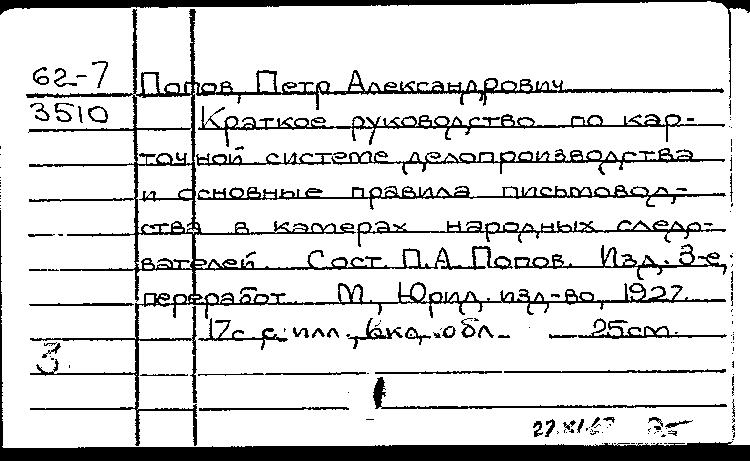 62-7 Попов, Петр Александрович
3510 Краткое руководство по кар-
точной системе делопроизводства
и основные правила письмовод-
ства в камерах народных следо-
вателей. Сост. П.А. Попов. Изд. 3-е,
переработ. М., Юрид. изд-во, 1927.
17с. с илл., вкл. обл. 25см.
3
27.XI.62